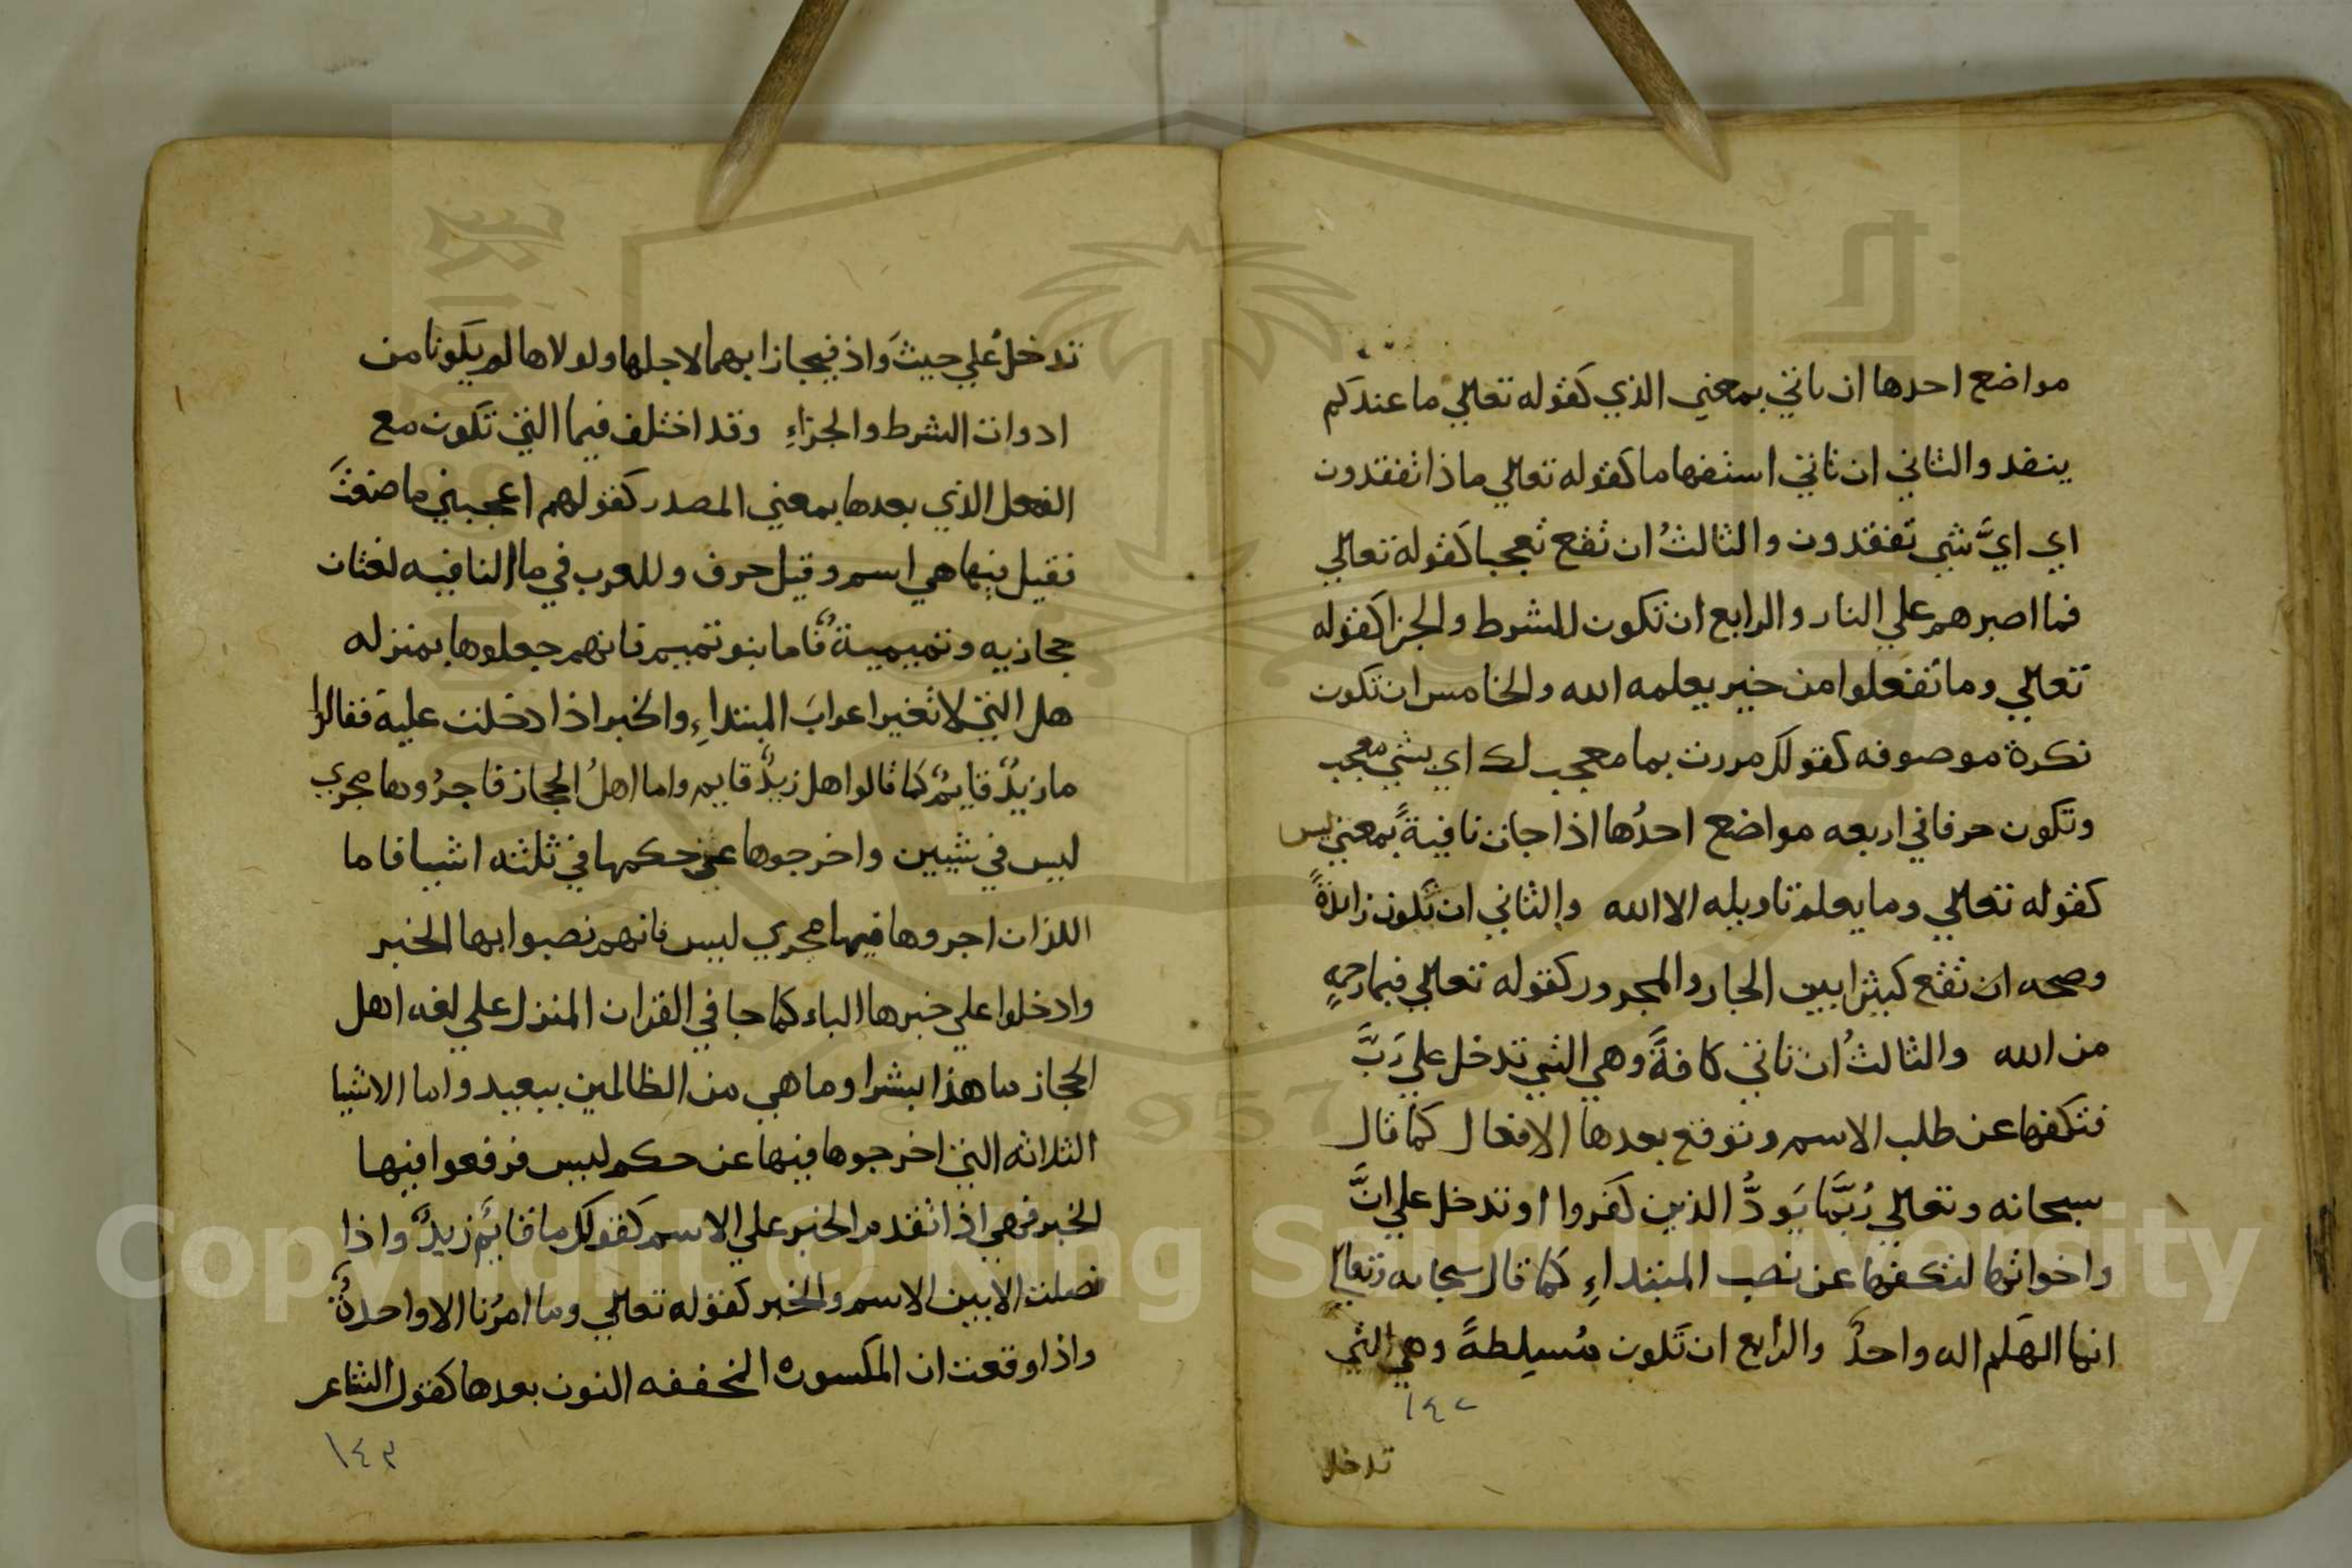 مواضع احدها ان ياتي بمعني الذي كقوله تعالي ما عندكم
ينفد والثاني ان تاتي استفهاما كقوله تعالي ماذا تفقدون
اي ايَّ شي تفقدون والثالثُ ان تقع تعجبا كقوله تعالي
فما اصبرهم علي النار والرابع ان تكون للشرط والجزا كقوله
تعالي وما تفعلوا من خير يعلمه الله والخامس ان تكون
نكرة موصوفه كقولك مررت بما معجب لك اي بشي معجب
وتكون حرفا في اربعه مواضع احدُها اذا جات نافيةً بمعني ليس
كقوله تعالي وما يعلم تاويله الا الله والثاني ان تكون زائدةً
وصحه ان تقع كثيرا بين الجار والمجرور كقوله تعالي فبما رحمةٍ
من الله والثالثُ ان تاتي كافةً وهي التي تدخل علي رَبَّ
فتكفها عن طلب الاسم وتوقع بعدها الافعال كما قال
سبحانه وتعالي رُبَّما يَودُّ الذين كفروا او تدخل علي انَّ
واخواتها لتكفها عن نصب المبتداءِ كما قال سبحانه وتعالي
انما الهكم اله واحدٌ والرابع ان تكون مُسلِطةً وهي التي
١٤٢
تدخل
تدخلُ علي حيثُ واذ فيجازا بهما لاجلها ولولاها لم يكونا من
ادوات الشرط والجزاءِ وقد اختلف فيما التي تكون مع
الفعل الذي بعدها بمعني المصدر كقولهم اعجبني ما صنعتَ
فقيل فيها هي اسم وقيل حرف وللعرب في ما النافيه لغتان
حجازيه وتميميةٌ فاما بنو تميم فانهم جعلوها بمنزله
هل التي لا تغير اعرابَ المبتداءِ والخبر اذا دخلت عليه فقالوا
ما زيدٌ قايمٌ كما قالوا هل زيدٌ قايم واما اهلُ الحجاز فاجرُوها مجري
ليس في شيين واخرجوها عن حكمها في ثلثه اشيا فاما
اللذان اجروها فيهما مجري ليس فانهم نصبوا بها الخبر
وادخلوا علي خبرها الباء كما جا في القران المنزل علي لغه اهل
الحجاز ما هذا بشرا وما هي من الظالمين ببعيد واما الاشيا
الثلاثه التي اخرجوها فيها عن حكم ليس فرفعوا فيها
الخبر فهي اذا تقدم الخبر علي الاسم كقولك ما قايمٌ زيدٌ واذا
فصلت الا بين الاسم والخبر كقوله تعالي وما امرُنا الا واحدةٌ
واذا وقعت ان المكسوره المخففه النون بعدها كقول الشاعر
١٤٣
Copyright © King Saud University
1957